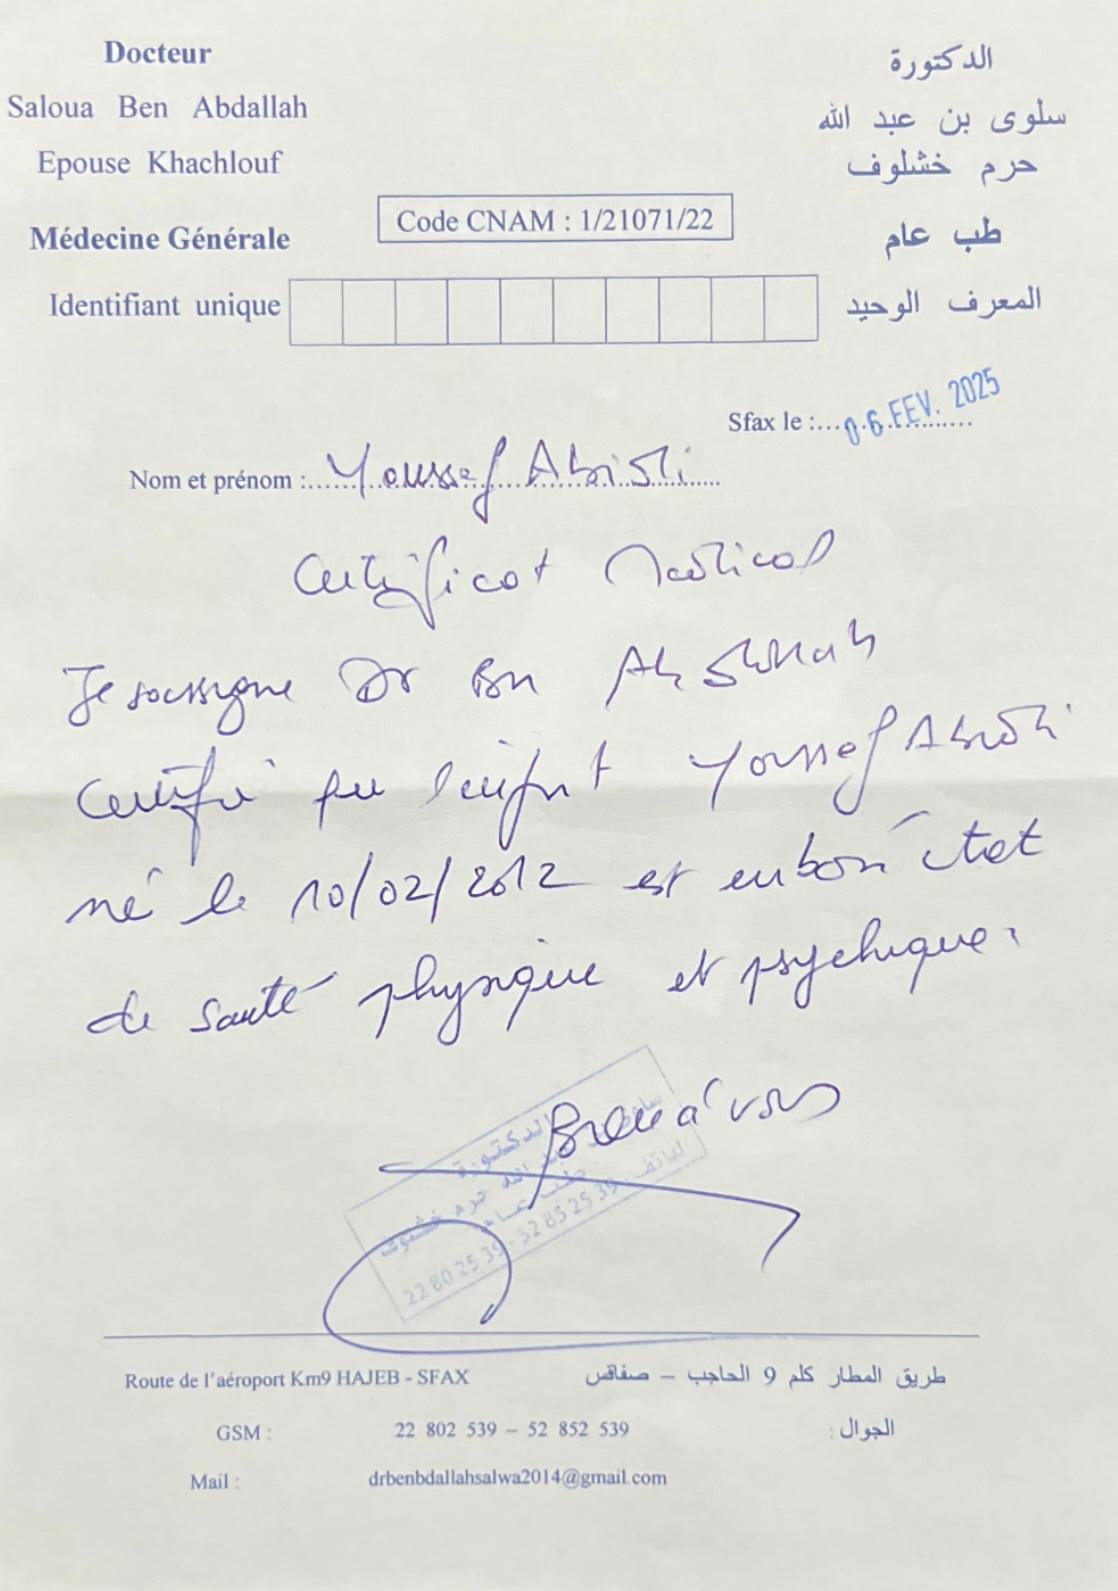 Docteur
الدكتورة
Saloua Ben Abdallah
سلوى بن عبد الله
Epouse Khachlouf
حرم خشلوف
Code CNAM : 1/21071/22
Médecine Générale
طب عام
Identifiant unique
المعرف الوحيد
Sfax le :... 06 FEV. 2025
Nom et prénom : Youssef
Certificat Médical
Je soussigné Dr Ben Abdallah
Certifie que l'enfant Youssef
né le 10/02/2012 est en bon état
de santé physique et psychique.
الدكتورة
سلوى بن عبد الله حرم خشلوف
طب عام
الهاتف : 22 80 25 39 - 52 85 25 39
Route de l'aéroport Km9 HAJEB - SFAX
طريق المطار كلم 9 الحاجب – صفاقس
GSM : 22 802 539 – 52 852 539 الجوال :
Mail : drbenbdallahsalwa2014@gmail.com